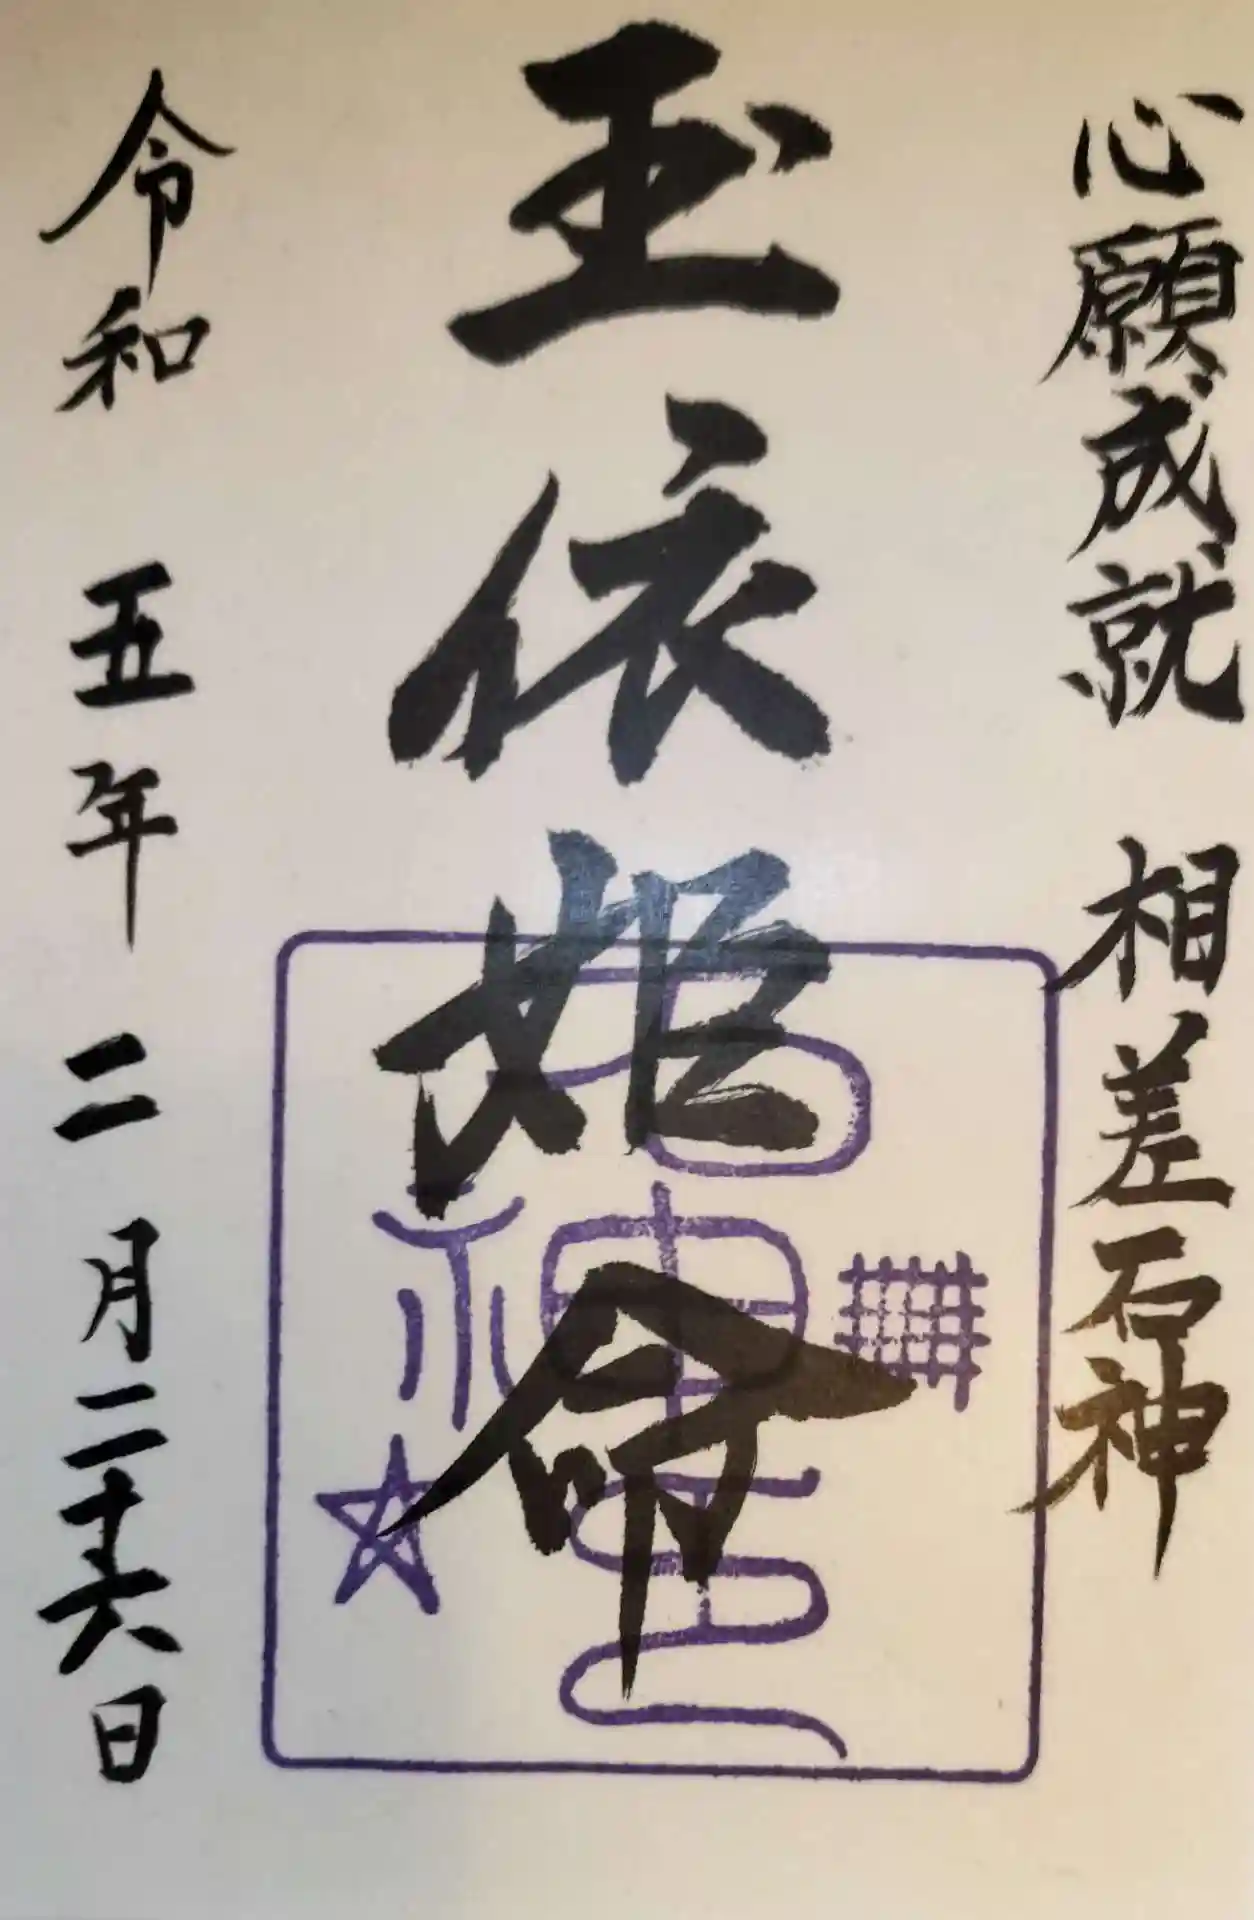 心願成就 相差石神
玉依姫命
令和 五年 二 月二十六日
石神